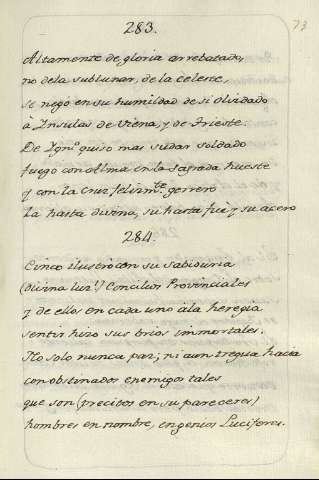 283.
73
Altamente de gloria arrebatado,
no dela sublunar, de la celeste,
se nego en su humildad de si olvidado
à Ynsulas de Viena, y de Trieste.
De Ygn.º quiso mas sudar soldado
fuego con Alma en la sagrada hueste
q con la Cruz felizm.te gerrero
la hasta divina, su hasta fuè y su acero
284.
Cinco ilustrò con su sabiduria
(Divina luz!) Concilios Provinciales
y de ellos en cada uno àla heregia
sentir hizo sus brios immortales.
No solo nunca paz; ni aun tregua hacia
con obstinados enemigos tales
que son (precitos en su pareceres)
hombres en nombre, engenios Luciferes.